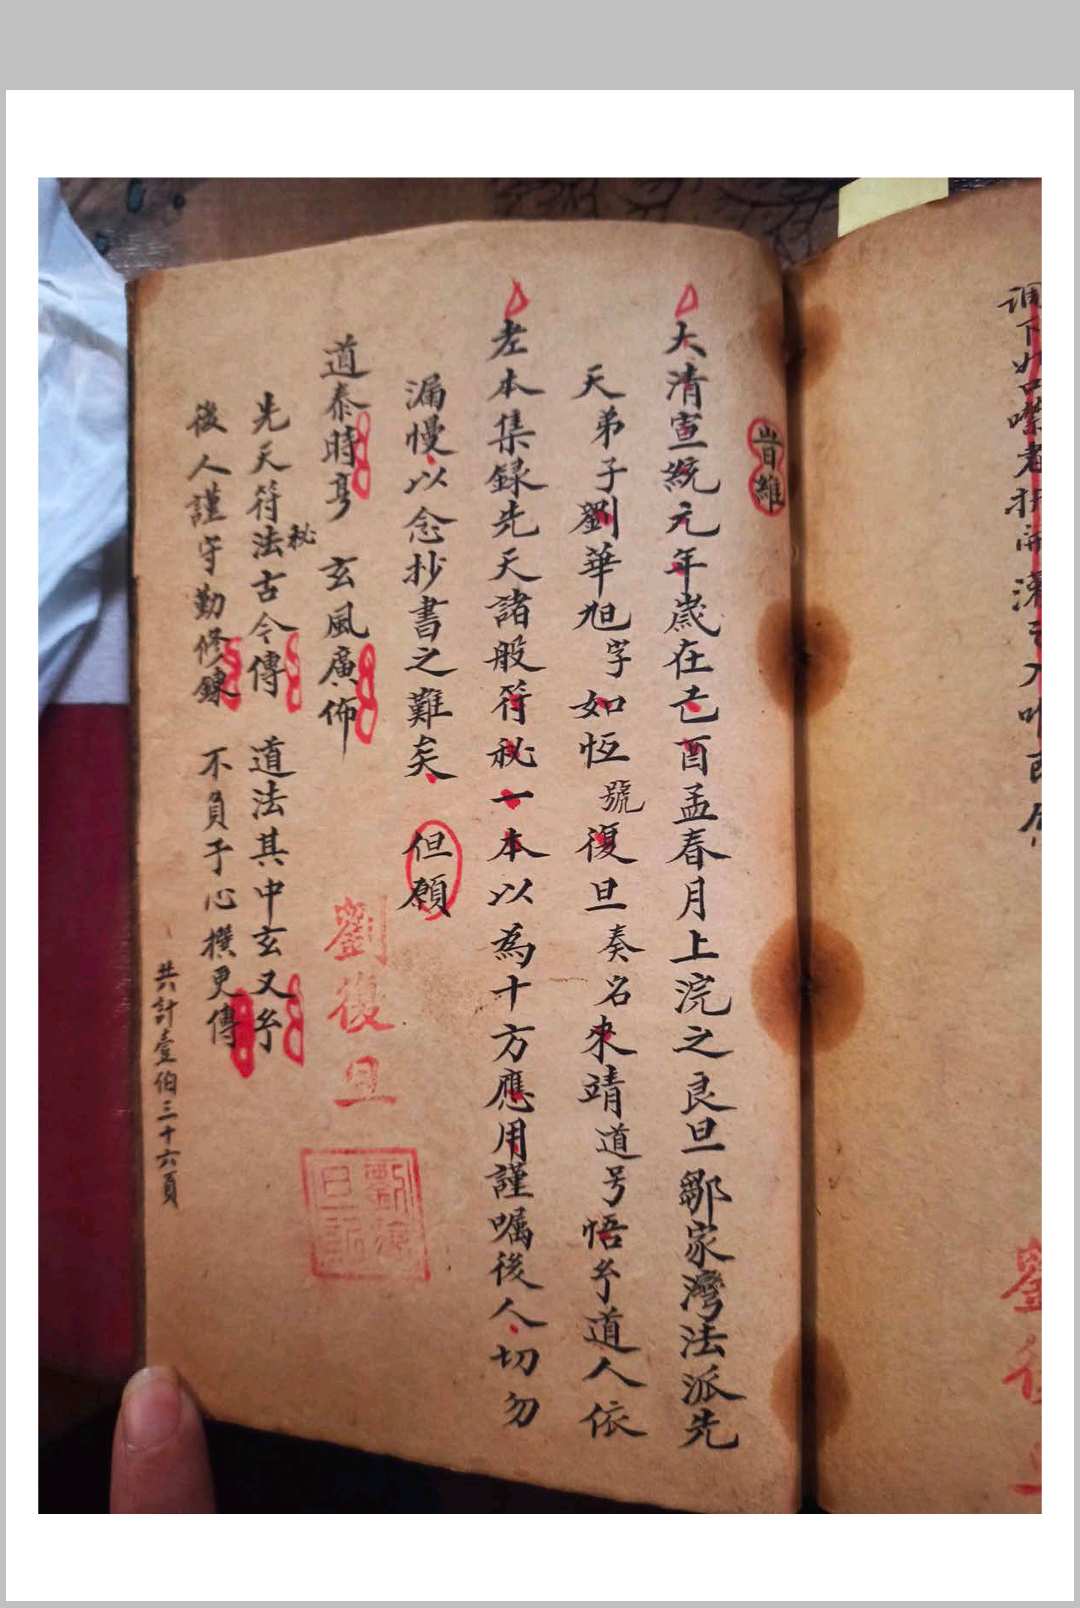 旹維
大清宣統元年歲在己酉孟春月上浣之良旦鄒家灣法派先
天弟子劉華旭字如恆號復旦奏名來靖道号悟玅道人依
老本集録先天諸般符秘一本以為十方應用謹嘱後人切勿
漏慢以念抄書之難矣 但願
道泰時亨 玄風廣佈
先天符法秘古今傳 道法其中玄又玅
後人謹守勤修鍊 不負予心撰更傳
共計壹伯三十六頁
劉復旦
劉復旦記